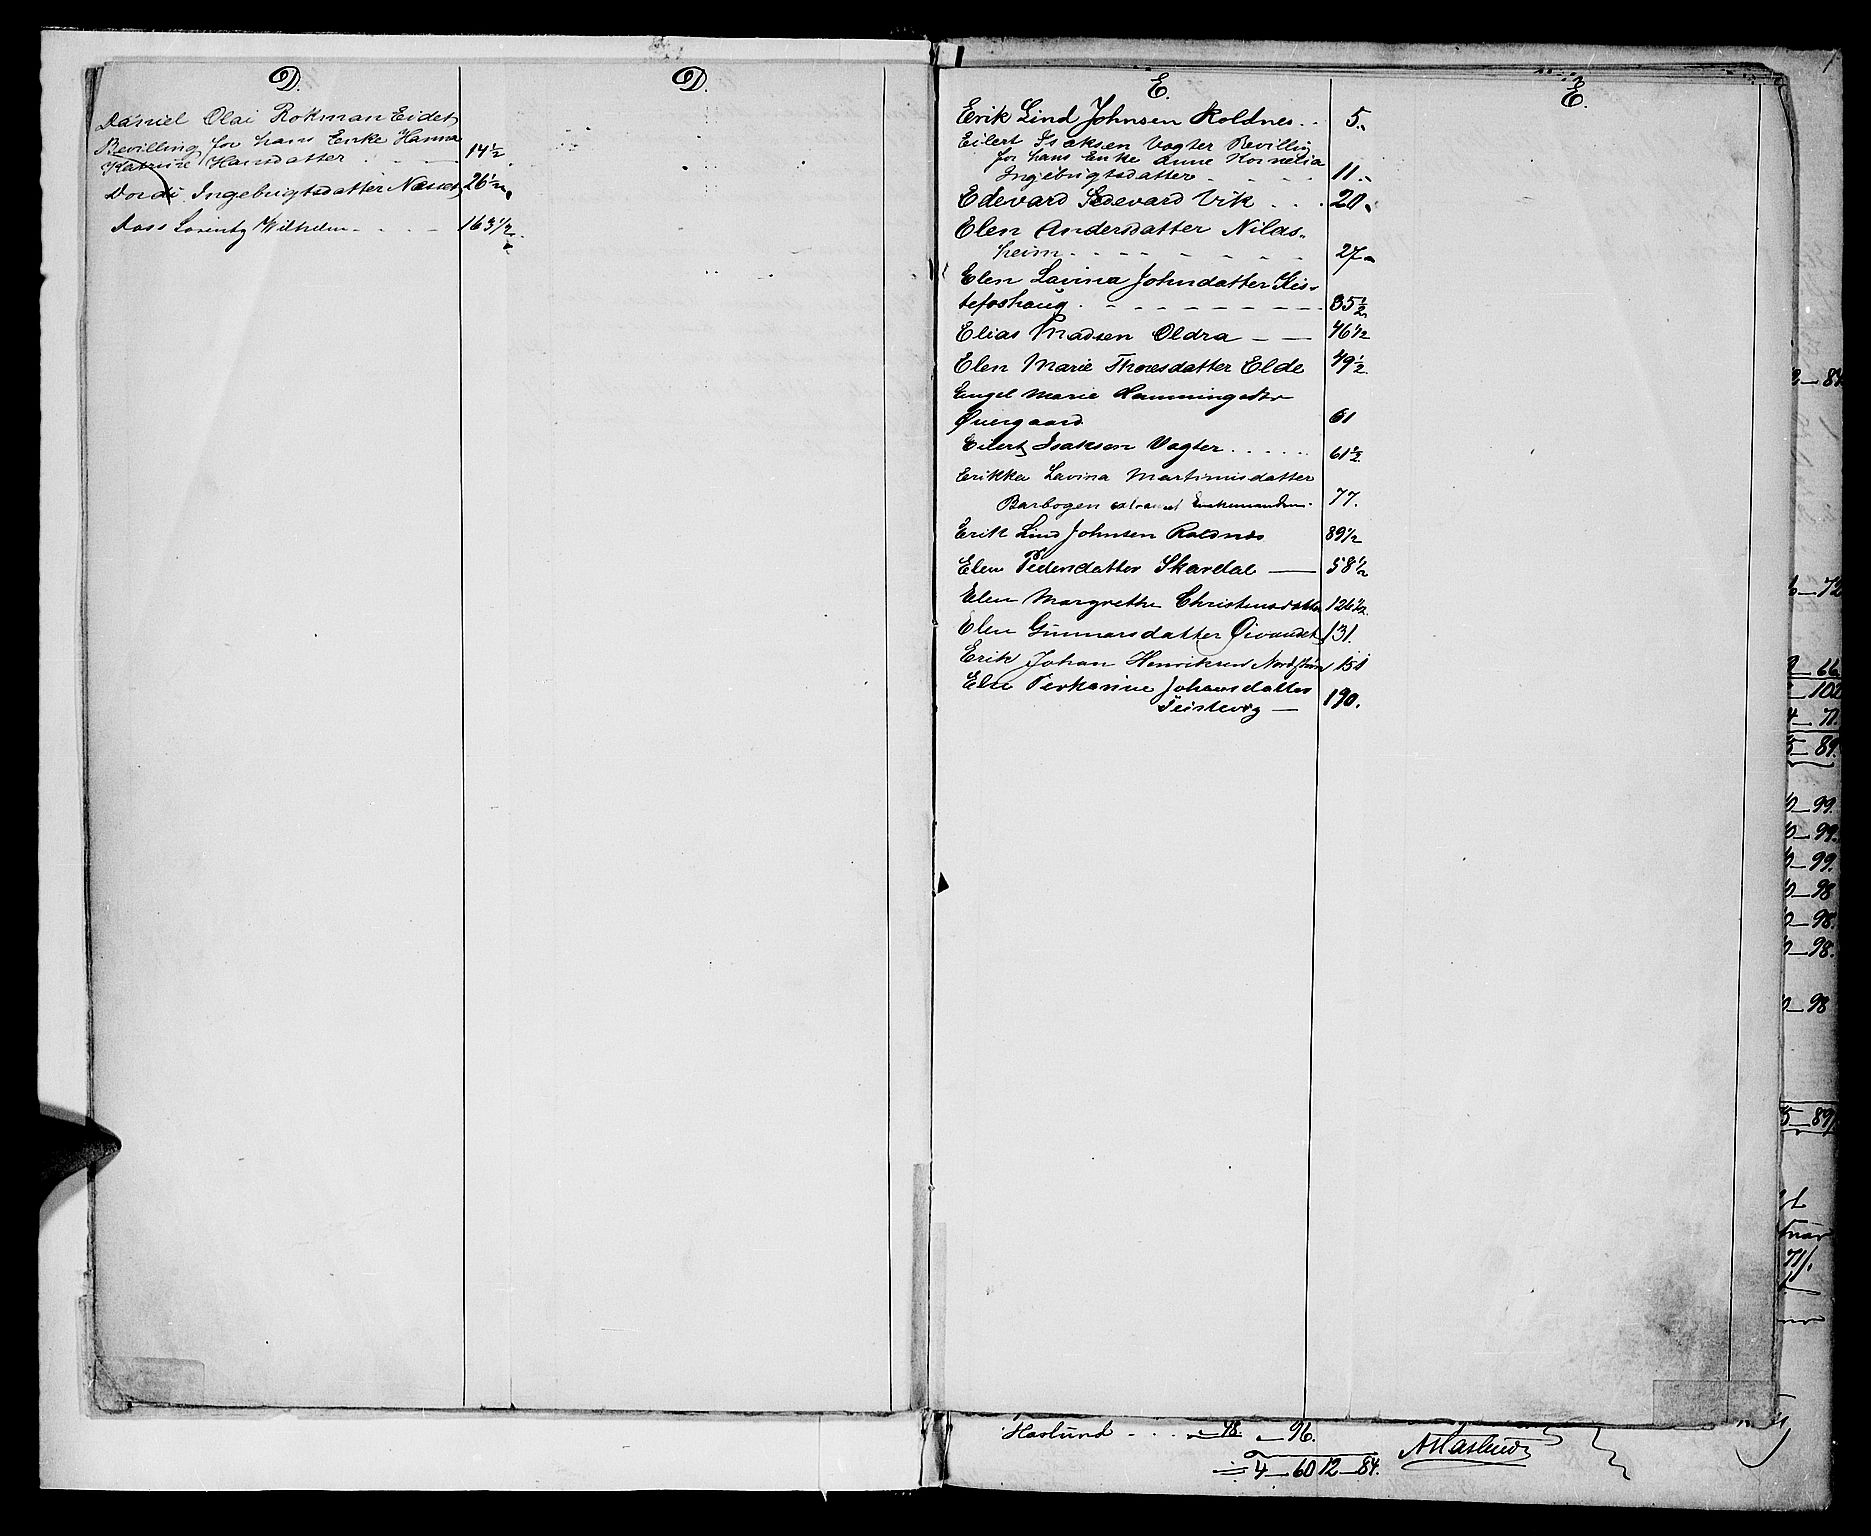 D.
Daniel Olai Rokman Eidet
Bevilling for hans Enke Hanna
Katrine Hansdatter 14½
Dordi Ingebrigtsdatter Næsset 26½
Dass Lorentz Wilhelm 163½
D.
E.
Erik Lind Johnsen Roldnes . . 5.
Eilert Isaksen Vagter Bevilling
for hans Enke Anne Kornelia
Ingebrigtsdatter 11.
Edevard Edevard Vik . . . 20.
Elen Andersdatter Nilas-
heim 27
Elen Lavina Johnsdatter Kis-
tefoshaug 35½
Elias Madsen Oldra 46½
Elen Marie Thoresdatter Elde 49½
Engel Marie Hemmingsdtr
Øvergaard 61
Eilert Isaksen Vagter . . . . . 61½
Erikka Lavina Martinusdatter
Barbogen Enkemanden 77.
Erik Lind Johnsen Roldnæs 89½
Elen Pedersdatter Skardal 58½
Elen Margrethe Christensdatter 126½
Elen Gunnarsdatter Øivandet 131.
Erik Johan Henriksen 151
Elen Perkarine Johansdatter
Teistevig 190.
E.
1
2—84
72
66
102
4—71.
5—89.
99.
99.
99.
98
98.
98.
98
5—89
71/.
Haslund . . . 48. — 96.
4—60 12—84.
AHaslund